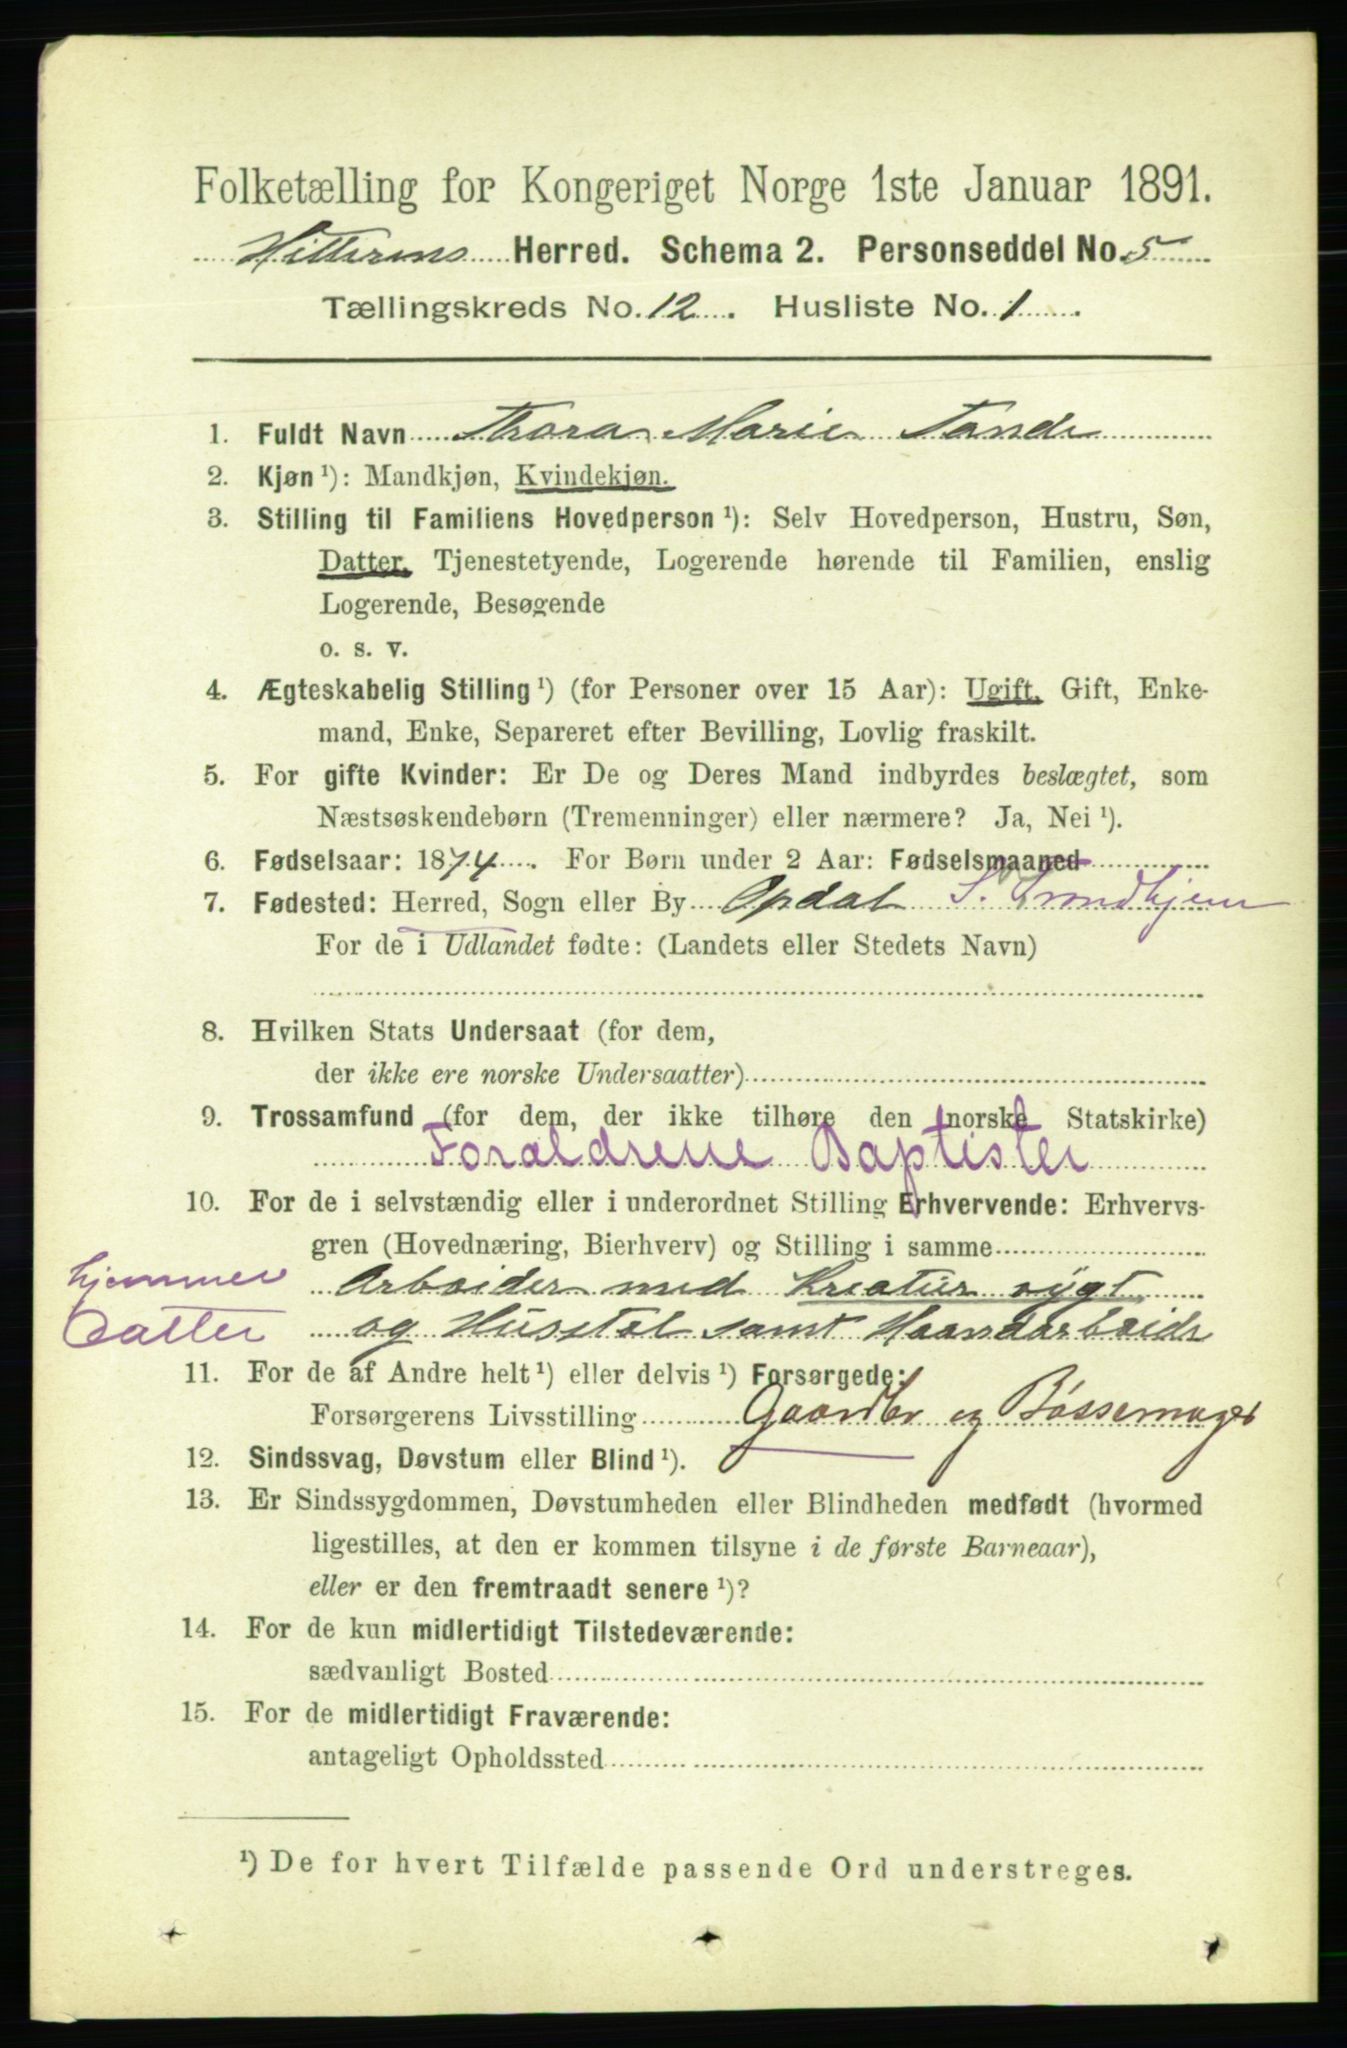 Folketælling for Kongeriget Norge 1ste Januar 1891.
Hitterens Herred. Schema 2. Personseddel No. 5
Tællingskreds No. 12. Husliste No. 1.
1. Fuldt Navn Thora Marie Tande
2. Kjøn ¹): Mandkjøn, Kvindekjøn.
3. Stilling til Familiens Hovedperson ¹): Selv Hovedperson, Hustru, Søn,
Datter, Tjenestetyende, Logerende hørende til Familien, enslig
Logerende, Besøgende
o. s. v.
4. Ægteskabelig Stilling ¹) (for Personer over 15 Aar): Ugift, Gift, Enke-
mand, Enke, Separeret efter Bevilling, Lovlig fraskilt.
5. For gifte Kvinder: Er De og Deres Mand indbyrdes beslægtet, som
Næstsøskendebørn (Tremenninger) eller nærmere? Ja, Nei ¹).
6. Fødselsaar: 1874. For Børn under 2 Aar: Fødselsmaaned
7. Fødested: Herred, Sogn eller By Opdal S. Trondhjem
For de i Udlandet fødte: (Landets eller Stedets Navn)
8. Hvilken Stats Undersaat (for dem,
der ikke ere norske Undersaatter)
9. Trossamfund (for dem, der ikke tilhøre den norske Statskirke)
Foræeldrene Baptister
10. For de i selvstændig eller i underordnet Stilling Erhvervende: Erhvervs-
gren (Hovednæring, Bierhverv) og Stilling i samme
hjemmev Arbeider med Kreatur rygt
Datter og Husstel samt Haandarbeide
11. For de af Andre helt ¹) eller delvis ¹) Forsørgede:
Forsørgerens Livsstilling Gaardbr og Bøssemager
12. Sindssvag, Døvstum eller Blind ¹).
13. Er Sindssygdommen, Døvstumheden eller Blindheden medfødt (hvormed
ligestilles, at den er kommen tilsyne i de første Barneaar),
eller er den fremtraadt senere ¹)?
14. For de kun midlertidigt Tilstedeværende:
sædvanligt Bosted
15. For de midlertidigt Fraværende:
antageligt Opholdssted
¹) De for hvert Tilfælde passende Ord understreges.